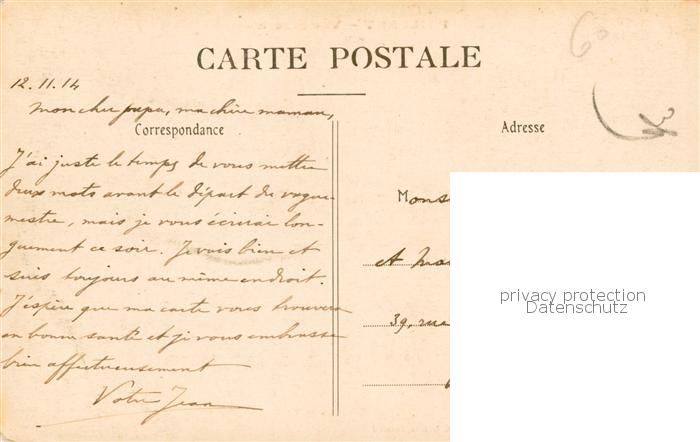 CARTE POSTALE
12.11.14
Mon cher papa, ma chère maman,
Correspondance
Adresse
J'ai juste le temps de vous mettre
deux mots avant le départ du vague-
mestre, mais je vous écrirai lon-
guement ce soir. Je vais bien et
suis toujours au même endroit.
J'espère que ma carte vous trouvera
en bonne santé et je vous embrasse
bien affectueusement
Votre Jean
Mons
et Ma
39, rue
privacy protection
Datenschutz
60